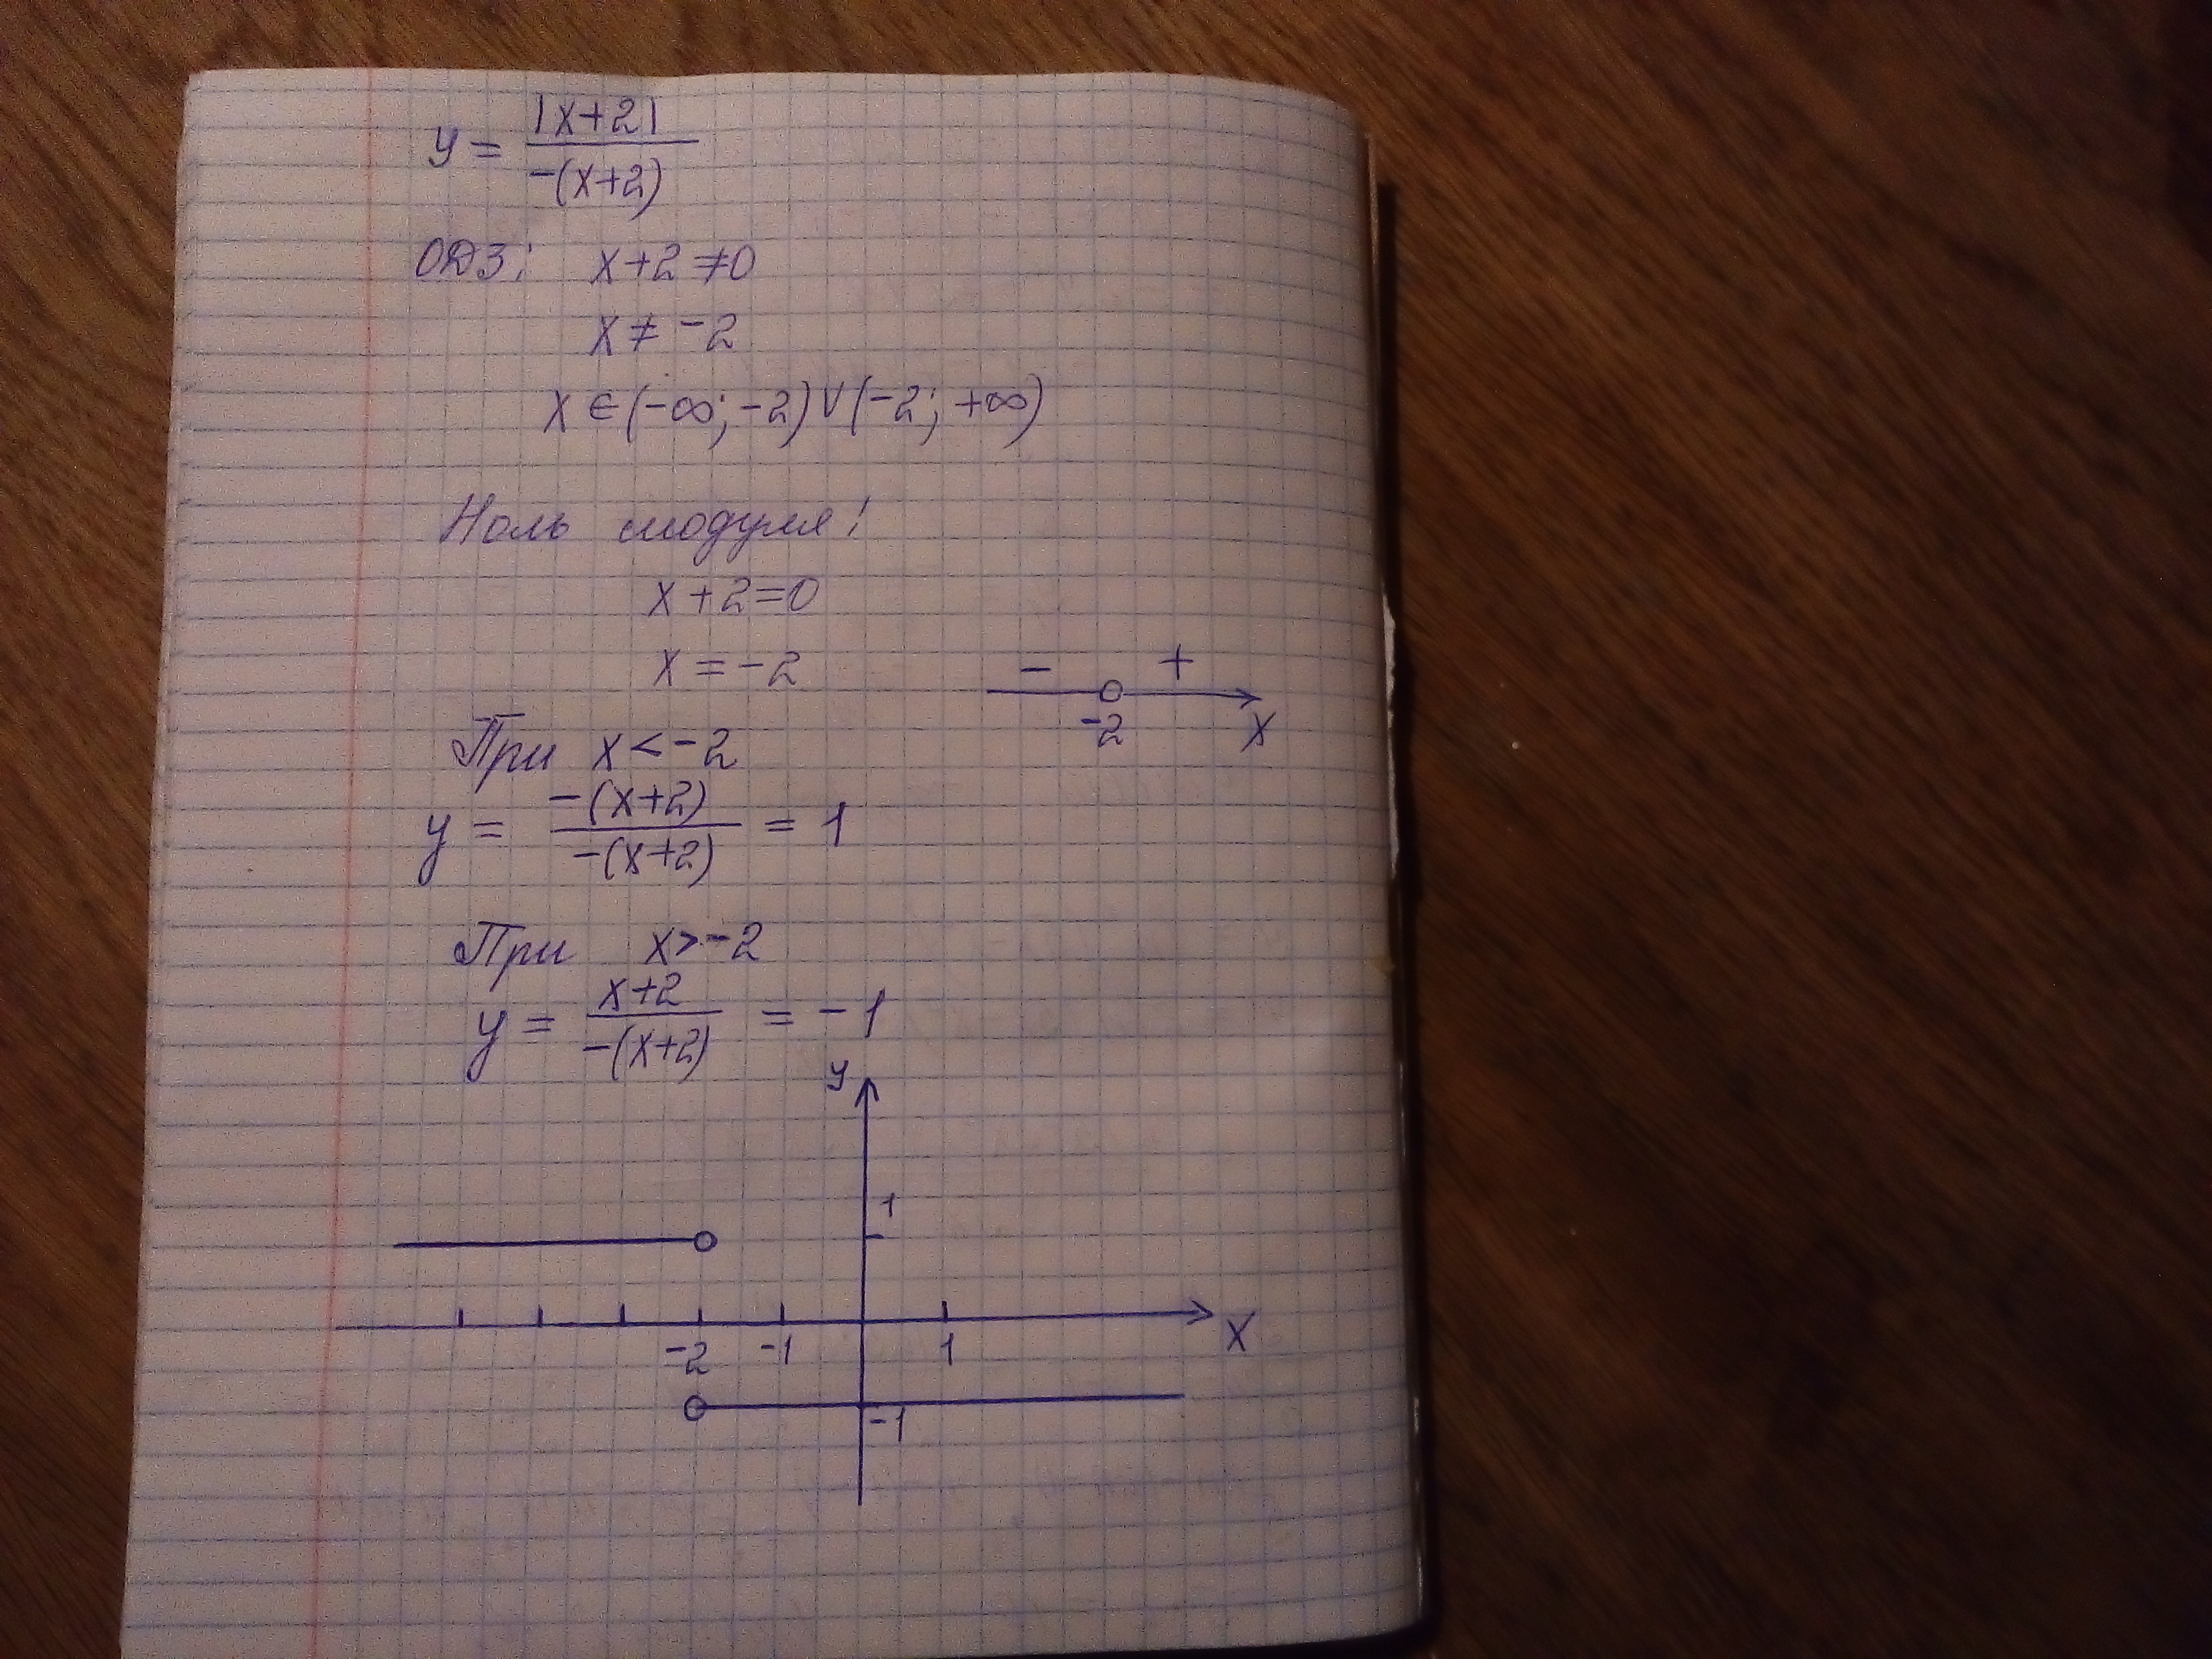 y = |x+2| / -(x+2)
ОДЗ: x+2≠0
x ≠ -2
x ∈ (-∞; -2) ∨ (-2; +∞)
Ноль модуля:
x+2=0
x = -2
- +
-2 x
При x < -2
y = -(x+2) / -(x+2) = 1
При x > -2
y = x+2 / -(x+2) = -1
y
1
-2 -1 1 x
-1